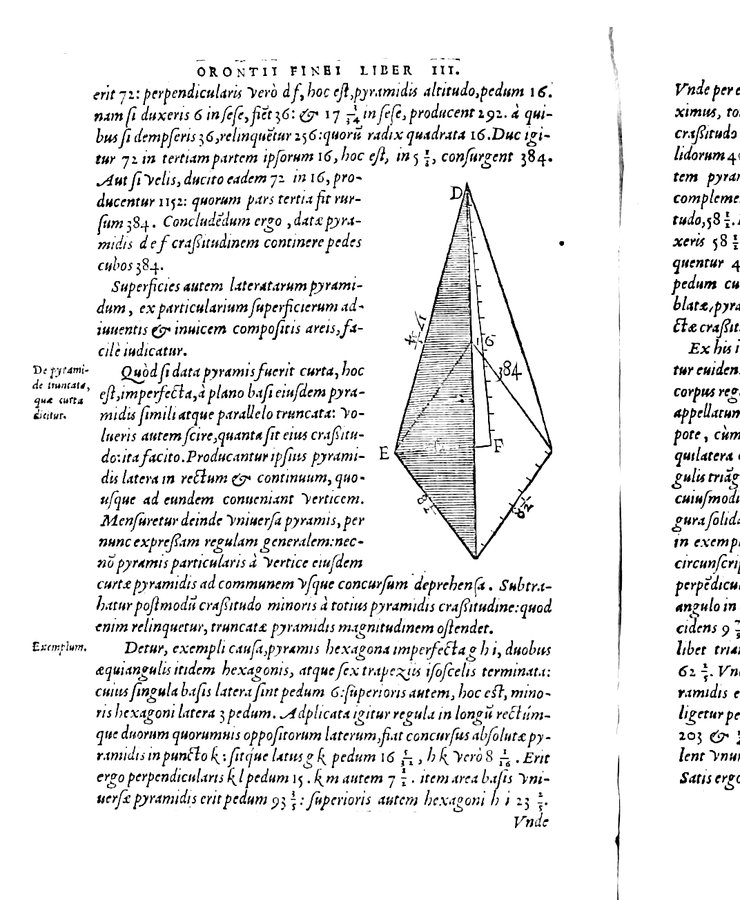 ORONTII FINEI LIBER III.
erit 72: perpendicularis verò df, hoc est, pyramidis altitudo, pedum 16.
nam si duxeris 6 in sese, fiẽt 36: & 17 1/14 in sese, producent 292. à qui-
bus si dempseris 36, relinquẽtur 256: quorũ radix quadrata 16. Duc igi-
tur 72 in tertiam partem ipsorum 16, hoc est, in 5 1/3, consurgent 384.
Aut si velis, ducito eadem 72 in 16, pro-
ducentur 1152: quorum pars tertia fit rur-
sum 384. Concludẽdum ergo, datæ pyra-
midis d e f crassitudinem continere pedes
cubos 384.
Superficies autem lateratarum pyrami-
dum, ex particularium superficierum ad-
iuuentis & inuicem compositis areis, fa-
cilè iudicatur.
De pyrami-
de truncata,
quæ curta
dicitur.
Quòd si data pyramis fuerit curta, hoc
est, imperfecta, à plano basi eiusdem pyra-
midis simili atque parallelo truncata: vo-
lueris autem scire, quanta sit eius crassitu-
do: ita facito. Producantur ipsius pyrami-
dis latera in rectum & continuum, quo-
usque ad eundem conueniant verticem.
Mensuretur deinde vniuersa pyramis, per
nunc expressam regulam generalem: nec-
nõ pyramis particularis à vertice eiusdem
curtæ pyramidis ad communem vsque concursum deprehensa. Subtra-
hatur postmodũ crassitudo minoris à totius pyramidis crassitudine: quod
enim relinquetur, truncatæ pyramidis magnitudinem ostendet.
D
16
384
E
F
8 1/2
8 1/2
Exemplum.
Detur, exempli causa, pyramis hexagona imperfecta g h i, duobus
æquiangulis itidem hexagonis, atque sex trapeziis isoscelis terminata:
cuius singula basis latera sint pedum 6: superioris autem, hoc est, mino-
ris hexagoni latera 3 pedum. Adplicata igitur regula in longũ rectúm-
que duorum quorumuis oppositorum laterum, fiat concursus absolutæ py-
ramidis in puncto k: sítque latus g k pedum 16 , h k verò 8 . Erit
ergo perpendicularis k l pedum 15. k m autem 7 1/2. item area basis vni-
uersæ pyramidis erit pedum 93 : superioris autem hexagoni h i 23 .
Vnde
Vnde per e
ximus, to
crassitudo
lidorum 4
tem pyra
compleme
tudo, 58
xeris 58
quentur 4
pedum cu
blatæ, pyra
ctæ crassi
Ex his i
tur euiden
corpus reg
appellatum
pote, cùm
quilatera
gulis triãg
cuiusmodi
gura solida
in exemp
circunscri
perpẽdicul
angulo in
cidens 9
libet tria
62 . Vn
ramidis e
ligetur pe
203 &
lent vnu
Satis ergo